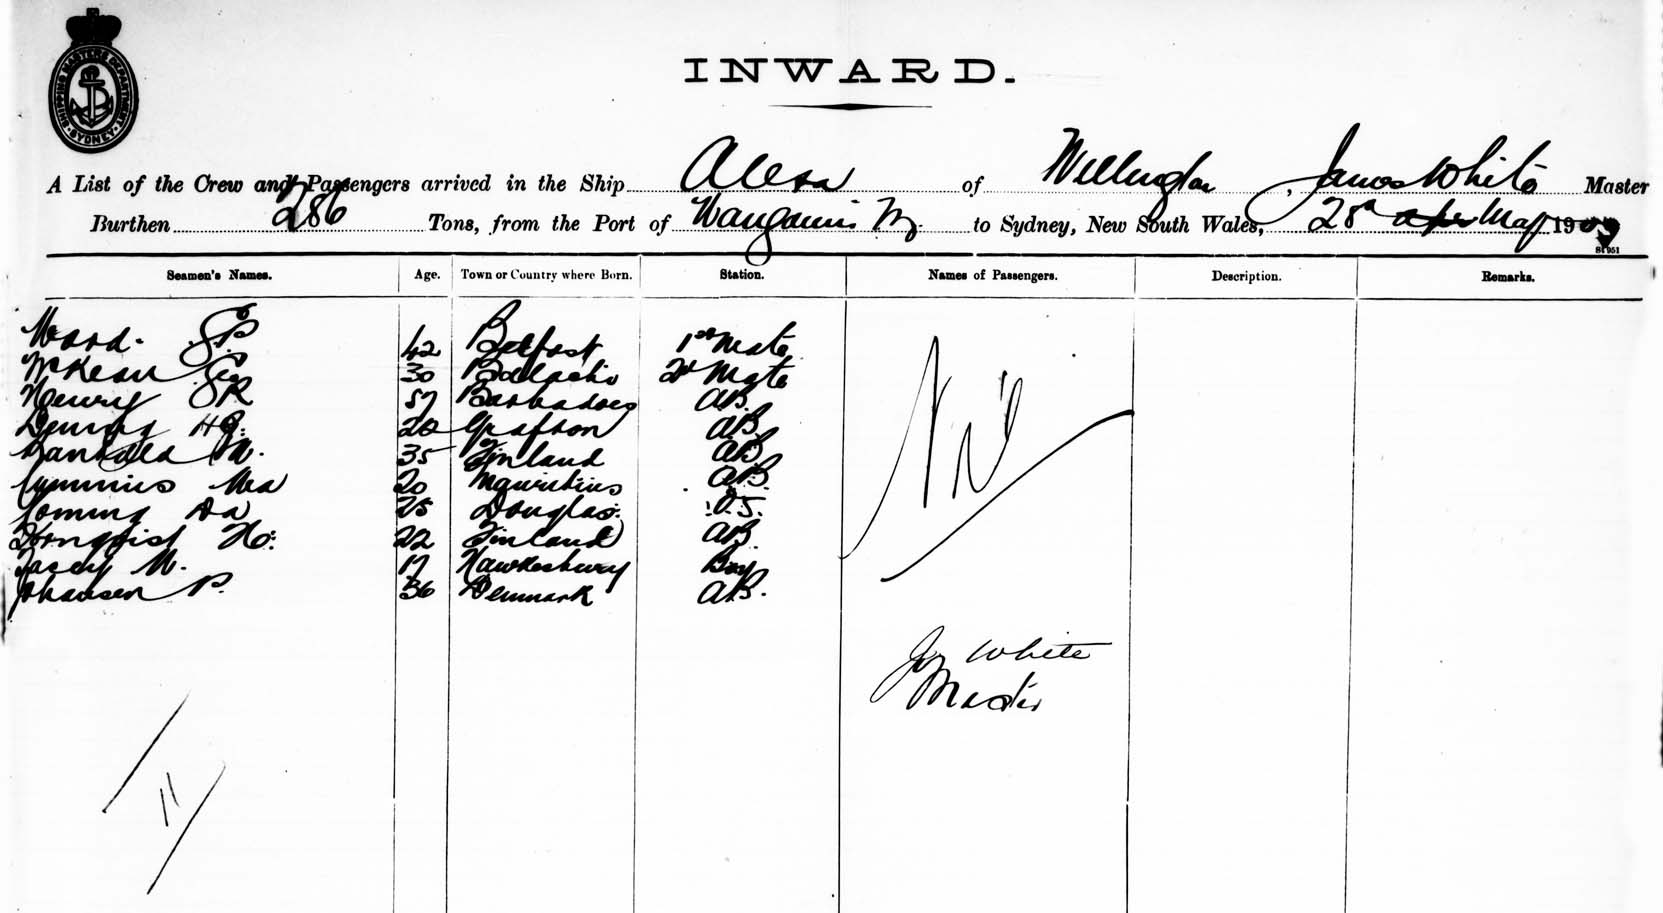 SHIPPING MASTERS DEPARTMENT SYDNEY
INWARD.
A List of the Crew and Passengers arrived in the Ship Alexa of Wellington, James White Master
Burthen 286 Tons, from the Port of Wanganui NZ. to Sydney, New South Wales, 28th May 1909
Seamen's Names. Age. Town or Country where Born. Station. Names of Passengers. Description. Remarks.
Ward. 42 Belfast 1st Mate
McKean Geo 30 2d Mate
Henry 57 Barbadoes AB.
20 Grafton AB
M. 35 Finland AB
Cummins Wm 20 Mauritius AB.
25 Douglas. O.S.
22 Finland AB.
M. 17 Hawkesbury Boy
Johansen P. 36 Denmark AB.
Nil
Jas White
Master
11